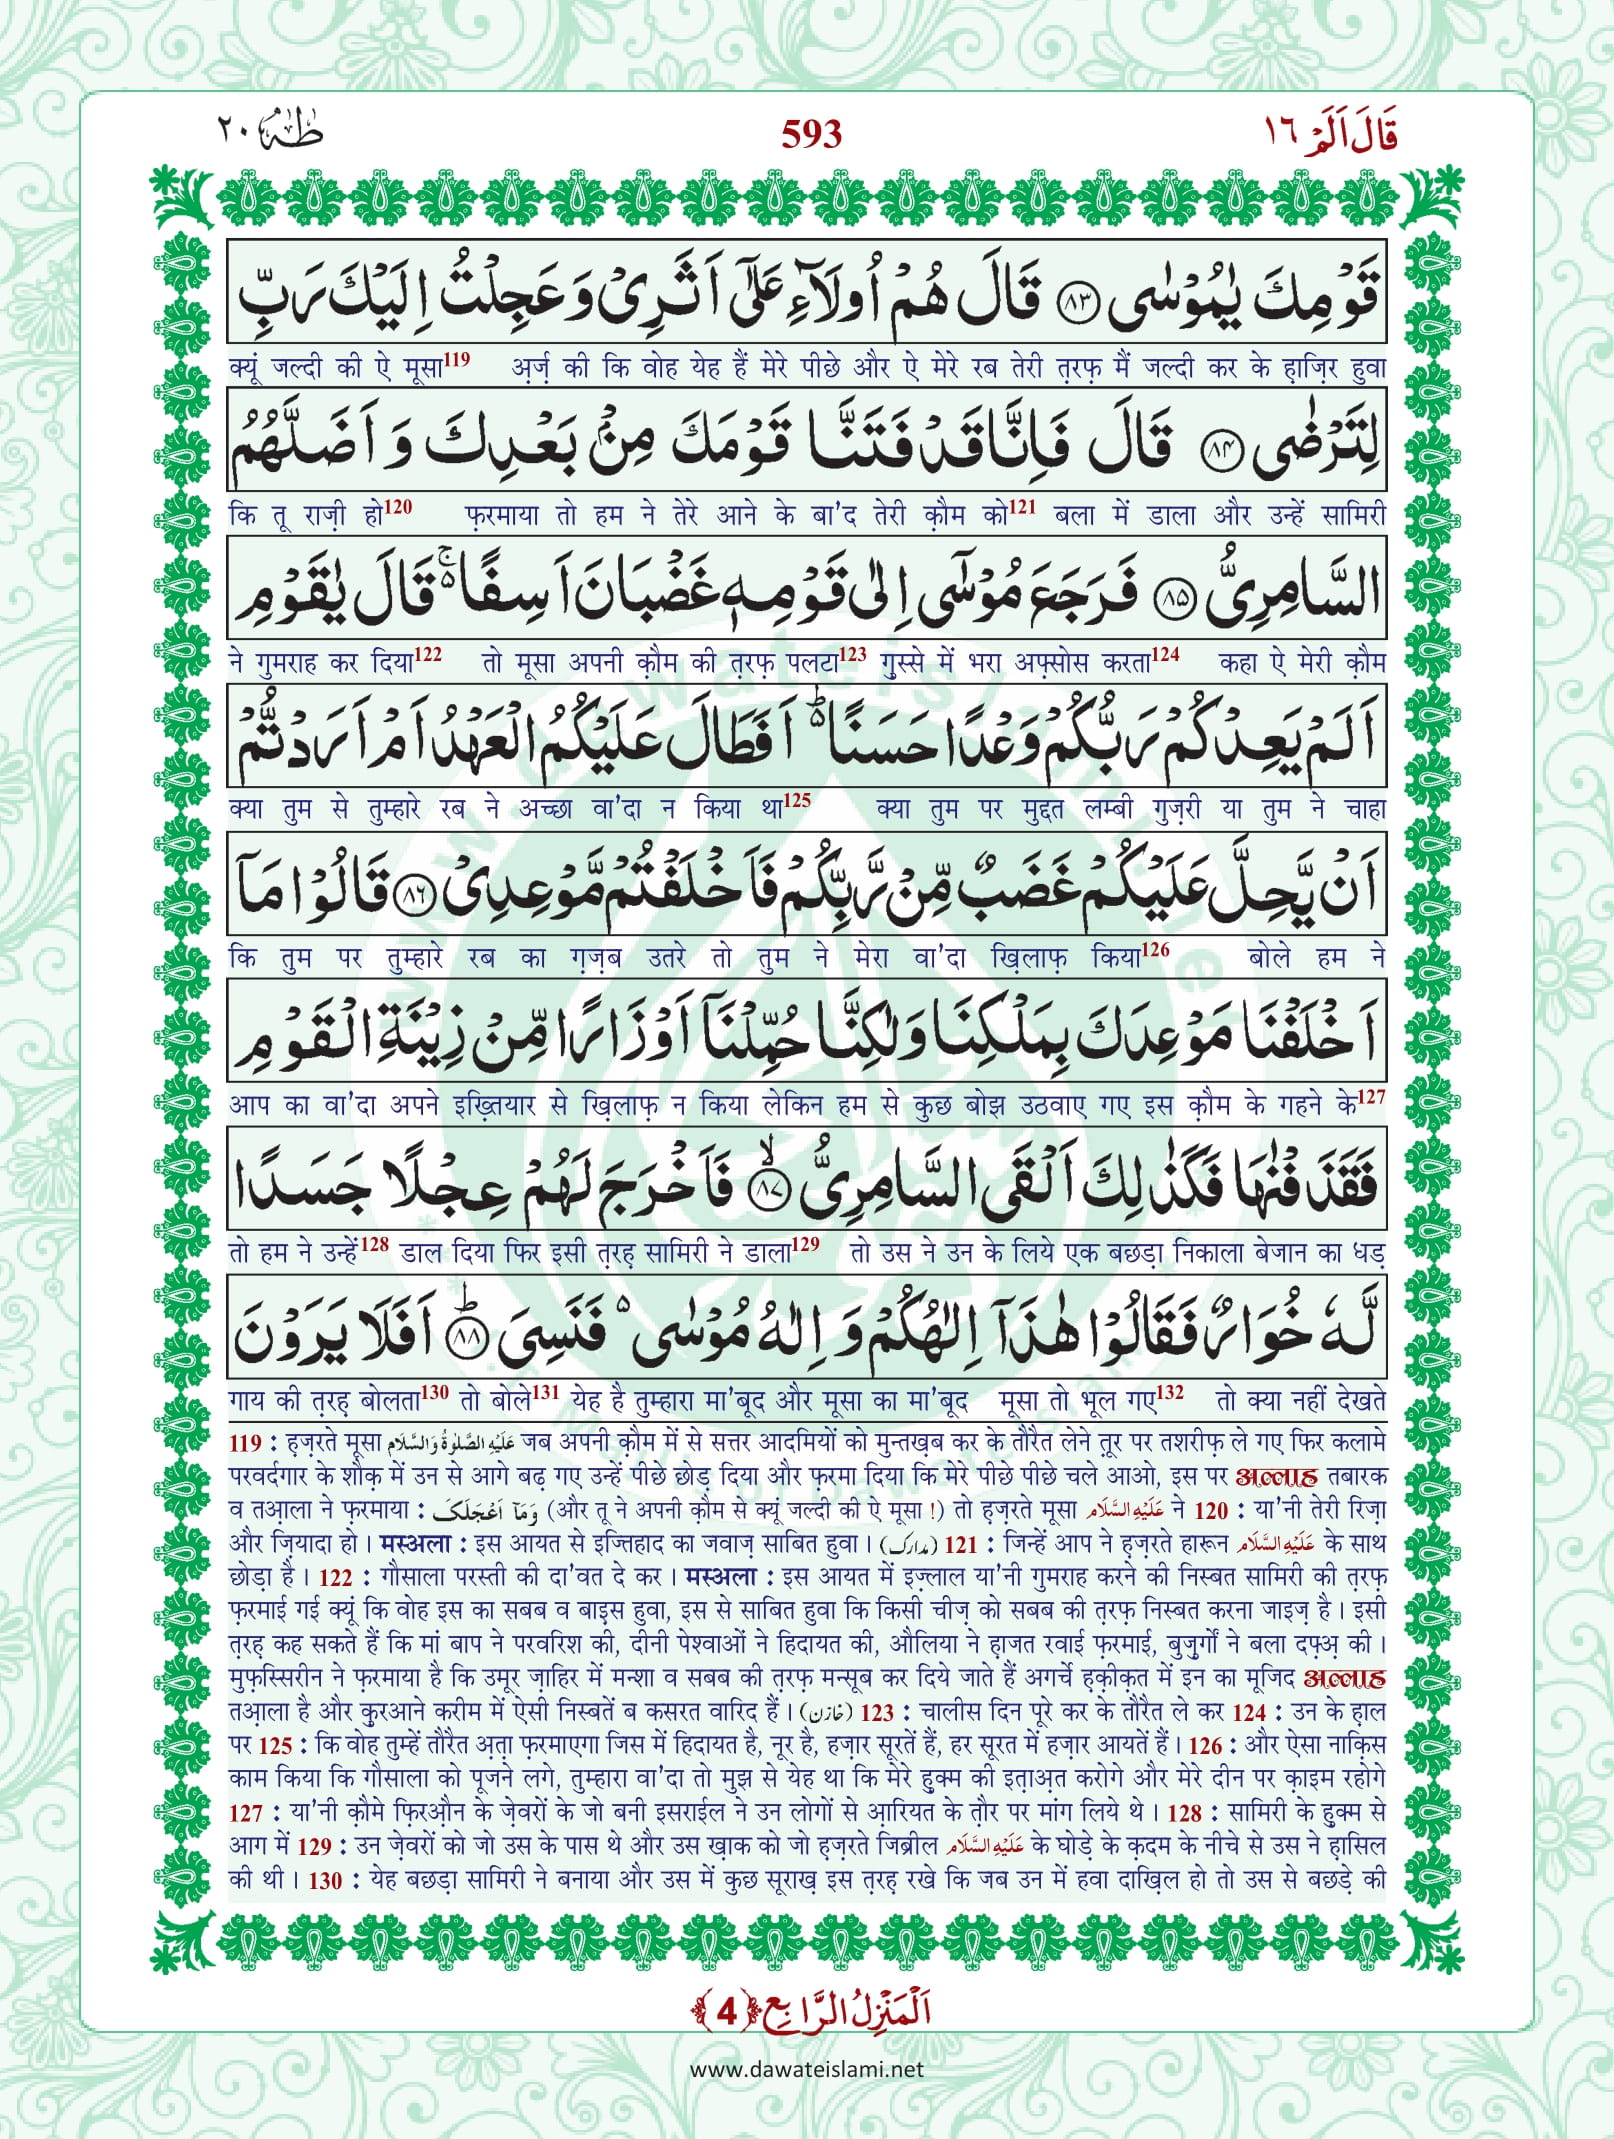 طٰهٰ ٢٠
593
قَالَ اَلَمْ ١٦
قَوْمِكَ يٰمُوْسٰى ﴿۸۳﴾ قَالَ هُمْ اُولَآءِ عَلٰۤى اَثَرِیْ وَ عَجِلْتُ اِلَیْكَ رَبِّ
क्यूं जल्दी की ऐ मूसा119 अ़र्ज़ की कि वोह येह हैं मेरे पीछे और ऐ मेरे रब तेरी त़रफ़ मैं जल्दी कर के ह़ाज़िर हुवा
لِتَرْضٰى ﴿۸۴﴾ قَالَ فَاِنَّا قَدْ فَتَنَّا قَوْمَكَ مِنْۢ بَعْدِكَ وَ اَضَلَّهُمُ
कि तू राज़ी हो120 फ़रमाया तो हम ने तेरे आने के बा'द तेरी क़ौम को121 बला में डाला और उन्हें सामिरी
السَّامِرِیُّ ﴿۸۵﴾ فَرَجَعَ مُوْسٰۤى اِلٰى قَوْمِهٖ غَضْبَانَ اَسِفًا ۚ۬ قَالَ یٰقَوْمِ
ने गुमराह कर दिया122 तो मूसा अपनी क़ौम की त़रफ़ पलटा123 ग़ुस्से में भरा अफ़्सोस करता124 कहा ऐ मेरी क़ौम
اَلَمْ یَعِدْكُمْ رَبُّكُمْ وَعْدًا حَسَنًا ؕ۬ اَفَطَالَ عَلَیْكُمُ الْعَهْدُ اَمْ اَرَدْتُّمْ
क्या तुम से तुम्हारे रब ने अच्छा वा'दा न किया था125 क्या तुम पर मुद्दत लम्बी गुज़री या तुम ने चाहा
اَنْ یَّحِلَّ عَلَیْكُمْ غَضَبٌ مِّنْ رَّبِّكُمْ فَاَخْلَفْتُمْ مَّوْعِدِیْ ﴿۸۶﴾ قَالُوْا مَاۤ
कि तुम पर तुम्हारे रब का ग़ज़ब उतरे तो तुम ने मेरा वा'दा ख़िलाफ़ किया126 बोले हम ने
اَخْلَفْنَا مَوْعِدَكَ بِمَلْكِنَا وَ لٰكِنَّا حُمِّلْنَاۤ اَوْزَارًا مِّنْ زِیْنَةِ الْقَوْمِ
आप का वा'दा अपने इख़्तियार से ख़िलाफ़ न किया लेकिन हम से कुछ बोझ उठवाए गए इस क़ौम के गहने के127
فَقَذَفْنٰهَا فَكَذٰلِكَ اَلْقَى السَّامِرِیُّ ﴿ۙ۸۷﴾ فَاَخْرَجَ لَهُمْ عِجْلًا جَسَدًا
तो हम ने उन्हें128 डाल दिया फिर इसी त़रह़ सामिरी ने डाला129 तो उस ने उन के लिये एक बछड़ा निकाला बेजान का धड़
لَّهٗ خُوَارٌ فَقَالُوْا هٰذَاۤ اِلٰهُكُمْ وَ اِلٰهُ مُوْسٰى ۬ فَنَسِیَ ﴿ؕ۸۸﴾ اَفَلَا یَرَوْنَ
गाय की त़रह़ बोलता130 तो बोले131 येह है तुम्हारा मा'बूद और मूसा का मा'बूद मूसा तो भूल गए132 तो क्या नहीं देखते
119 : ह़ज़रते मूसा عَلَيْهِ الصَّلٰوةُ وَالسَّلَام जब अपनी क़ौम में से सत्तर आदमियों को मुन्तख़ब कर के तौरैत लेने त़ूर पर तशरीफ़ ले गए फिर कलामे
परवर्दगार के शौक़ में उन से आगे बढ़ गए उन्हें पीछे छोड़ दिया और फ़रमा दिया कि मेरे पीछे पीछे चले आओ, इस पर अल्लाह तबारक
व तआ़ला ने फ़रमाया : وَمَاۤ اَعْجَلَكَ (और तू ने अपनी क़ौम से क्यूं जल्दी की ऐ मूसा !) तो ह़ज़रते मूसा عَلَيْهِ السَّلَام ने 120 : या'नी तेरी रिज़ा
और ज़ियादा हो । मस्अला : इस आयत से इज्तिहाद का जवाज़ साबित हुवा । (مدارک) 121 : जिन्हें आप ने ह़ज़रते हारून عَلَيْهِ السَّلَام के साथ
छोड़ा है । 122 : गौसाला परस्ती की दा'वत दे कर । मस्अला : इस आयत में इज़्लाल या'नी गुमराह करने की निस्बत सामिरी की त़रफ़
फ़रमाई गई क्यूं कि वोह इस का सबब व बाइ़स हुवा, इस से साबित हुवा कि किसी चीज़ को सबब की त़रफ़ निस्बत करना जाइज़ है । इसी
त़रह़ कह सकते हैं कि मां बाप ने परवरिश की, दीनी पेश्वाओं ने हिदायत की, औलिया ने ह़ाजत रवाई फ़रमाई, बुज़ुर्गों ने बला दफ़्अ़ की ।
मुफ़स्सिरीन ने फ़रमाया है कि उमूर ज़ाहिर में मन्शा व सबब की त़रफ़ मन्सूब कर दिये जाते हैं अगर्चे ह़क़ीक़त में इन का मूजिद अल्लाह
तआ़ला है और कु़रआने करीम में ऐसी निस्बतें ब कसरत वारिद हैं । (خازن) 123 : चालीस दिन पूरे कर के तौरैत ले कर 124 : उन के ह़ाल
पर 125 : कि वोह तुम्हें तौरैत अ़त़ा फ़रमाएगा जिस में हिदायत है, नूर है, हज़ार सूरतें हैं, हर सूरत में हज़ार आयतें हैं । 126 : और ऐसा नाक़िस
काम किया कि गौसाला को पूजने लगे, तुम्हारा वा'दा तो मुझ से येह था कि मेरे हु़क्म की इत़ाअ़त करोगे और मेरे दीन पर क़ाइम रहोगे
127 : या'नी क़ौमे फ़िरऔ़न के ज़ेवरों के जो बनी इसराईल ने उन लोगों से आ़रियत के तौर पर मांग लिये थे । 128 : सामिरी के हु़क्म से
आग में 129 : उन ज़ेवरों को जो उस के पास थे और उस ख़ाक को जो ह़ज़रते जिब्रील عَلَيْهِ السَّلَام के घोड़े के क़दम के नीचे से उस ने ह़ासिल
की थी । 130 : येह बछड़ा सामिरी ने बनाया और उस में कुछ सूराख़ इस त़रह़ रखे कि जब उन में हवा दाख़िल हो तो उस से बछड़े की
اَلْمَنْزِلُ الرَّابِع ﴿4﴾
www.dawateislami.net